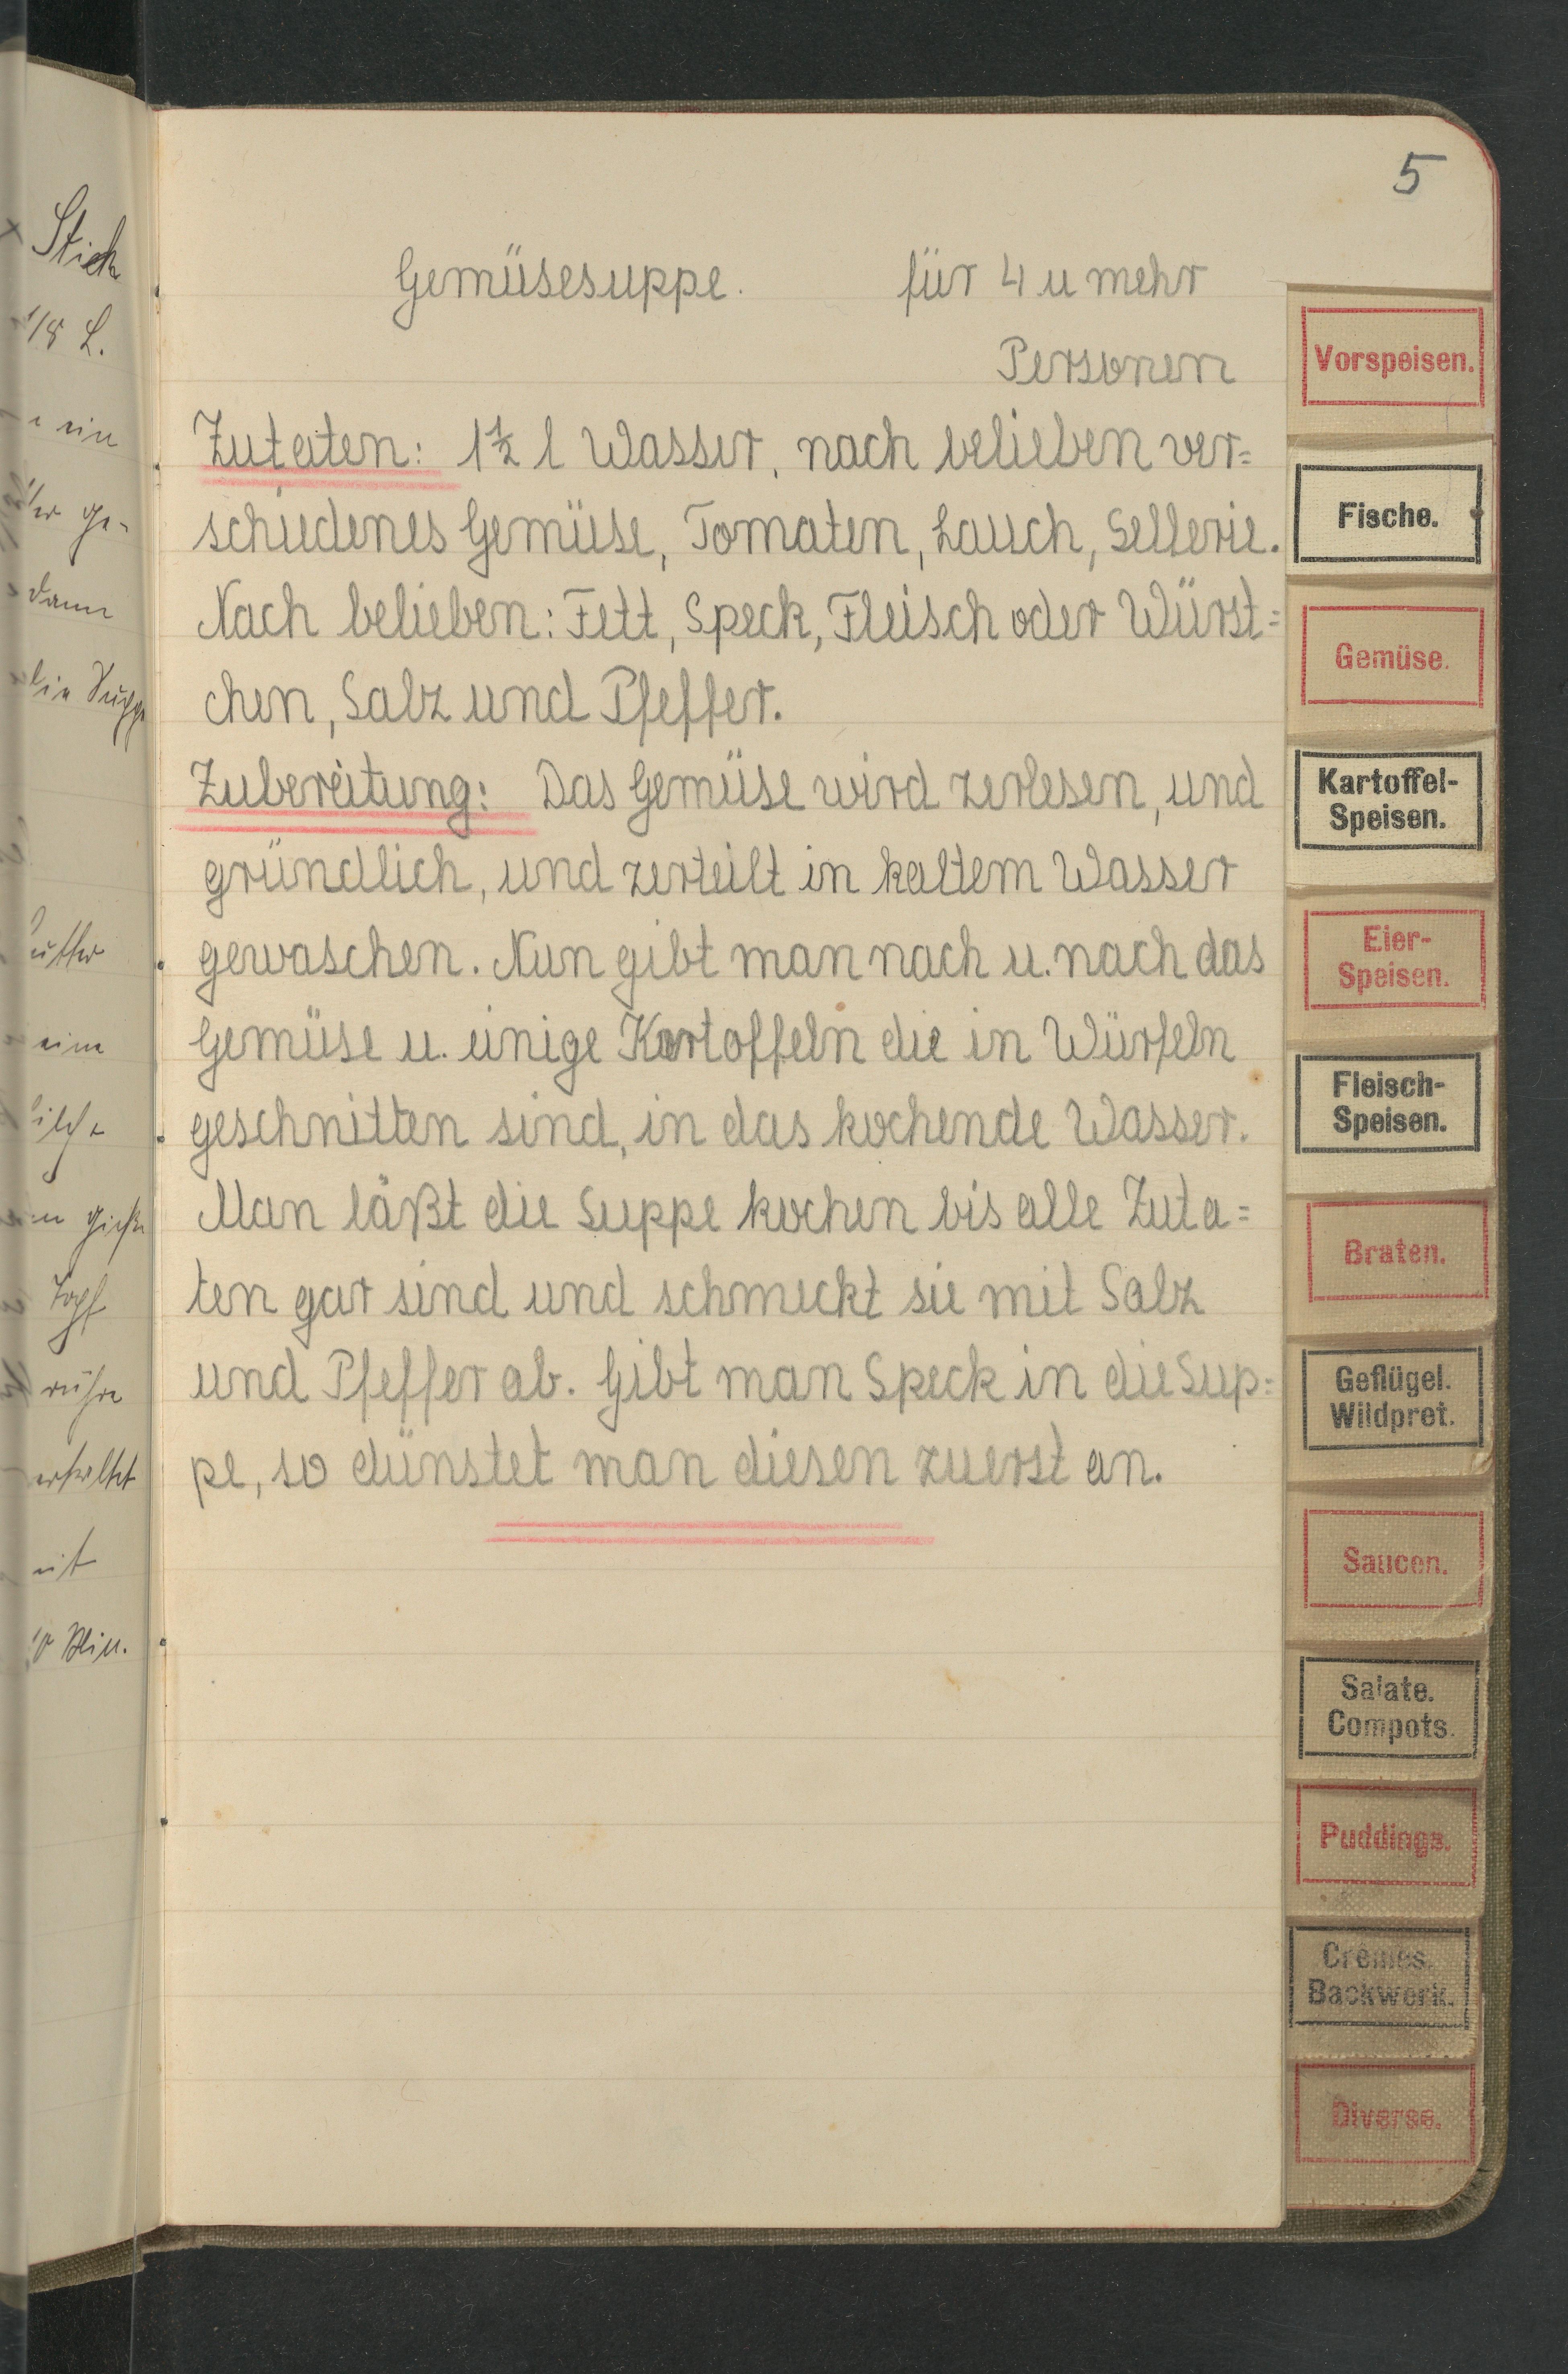 5
Gemüsesuppe. für 4 u mehr
Personen
Zutaten: 1½ l Wasser, nach belieben ver=
schiedenes Gemüse, Tomaten, Lauch, Sellerie.
Nach belieben: Fett, Speck, Fleisch oder Würst=
chen, Salz und Pfeffer.
Zubereitung: Das Gemüse wird zerlesen, und
gründlich, und zerteilt in kaltem Wasser
gewaschen. Nun gibt man nach u. nach das
Gemüse u. einige Kartoffeln die in Würfeln
geschnitten sind, in das kochende Wasser.
Man läßt die Suppe kochen bis alle Zuta=
ten gar sind und schmeckt sie mit Salz
und Pfeffer ab. Gibt man Speck in die Sup=
pe, so dünstet man diesen zuerst an.
Vorspeisen.
Fische.
Gemüse.
Kartoffel-
Speisen.
Eier-
Speisen.
Fleisch-
Speisen.
Braten.
Geflügel.
Wildpret.
Saucen.
Salate.
Compots.
Puddings.
Crêmes.
Backwerk.
Diverse.
Stick
1/8 L.
ein
ge-
dann
eine
Topf
rühre